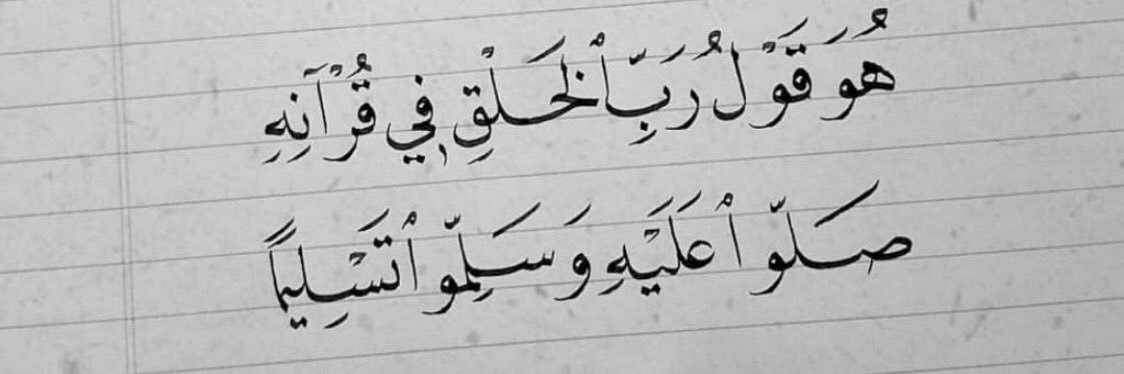 هُوَ قَوْلُ رَبِّ الْخَلْقِ فِي قُرْآنِهِ
صَلّوا عَلَيْهِ وَسَلِّمّوا تَسْلِيمًا